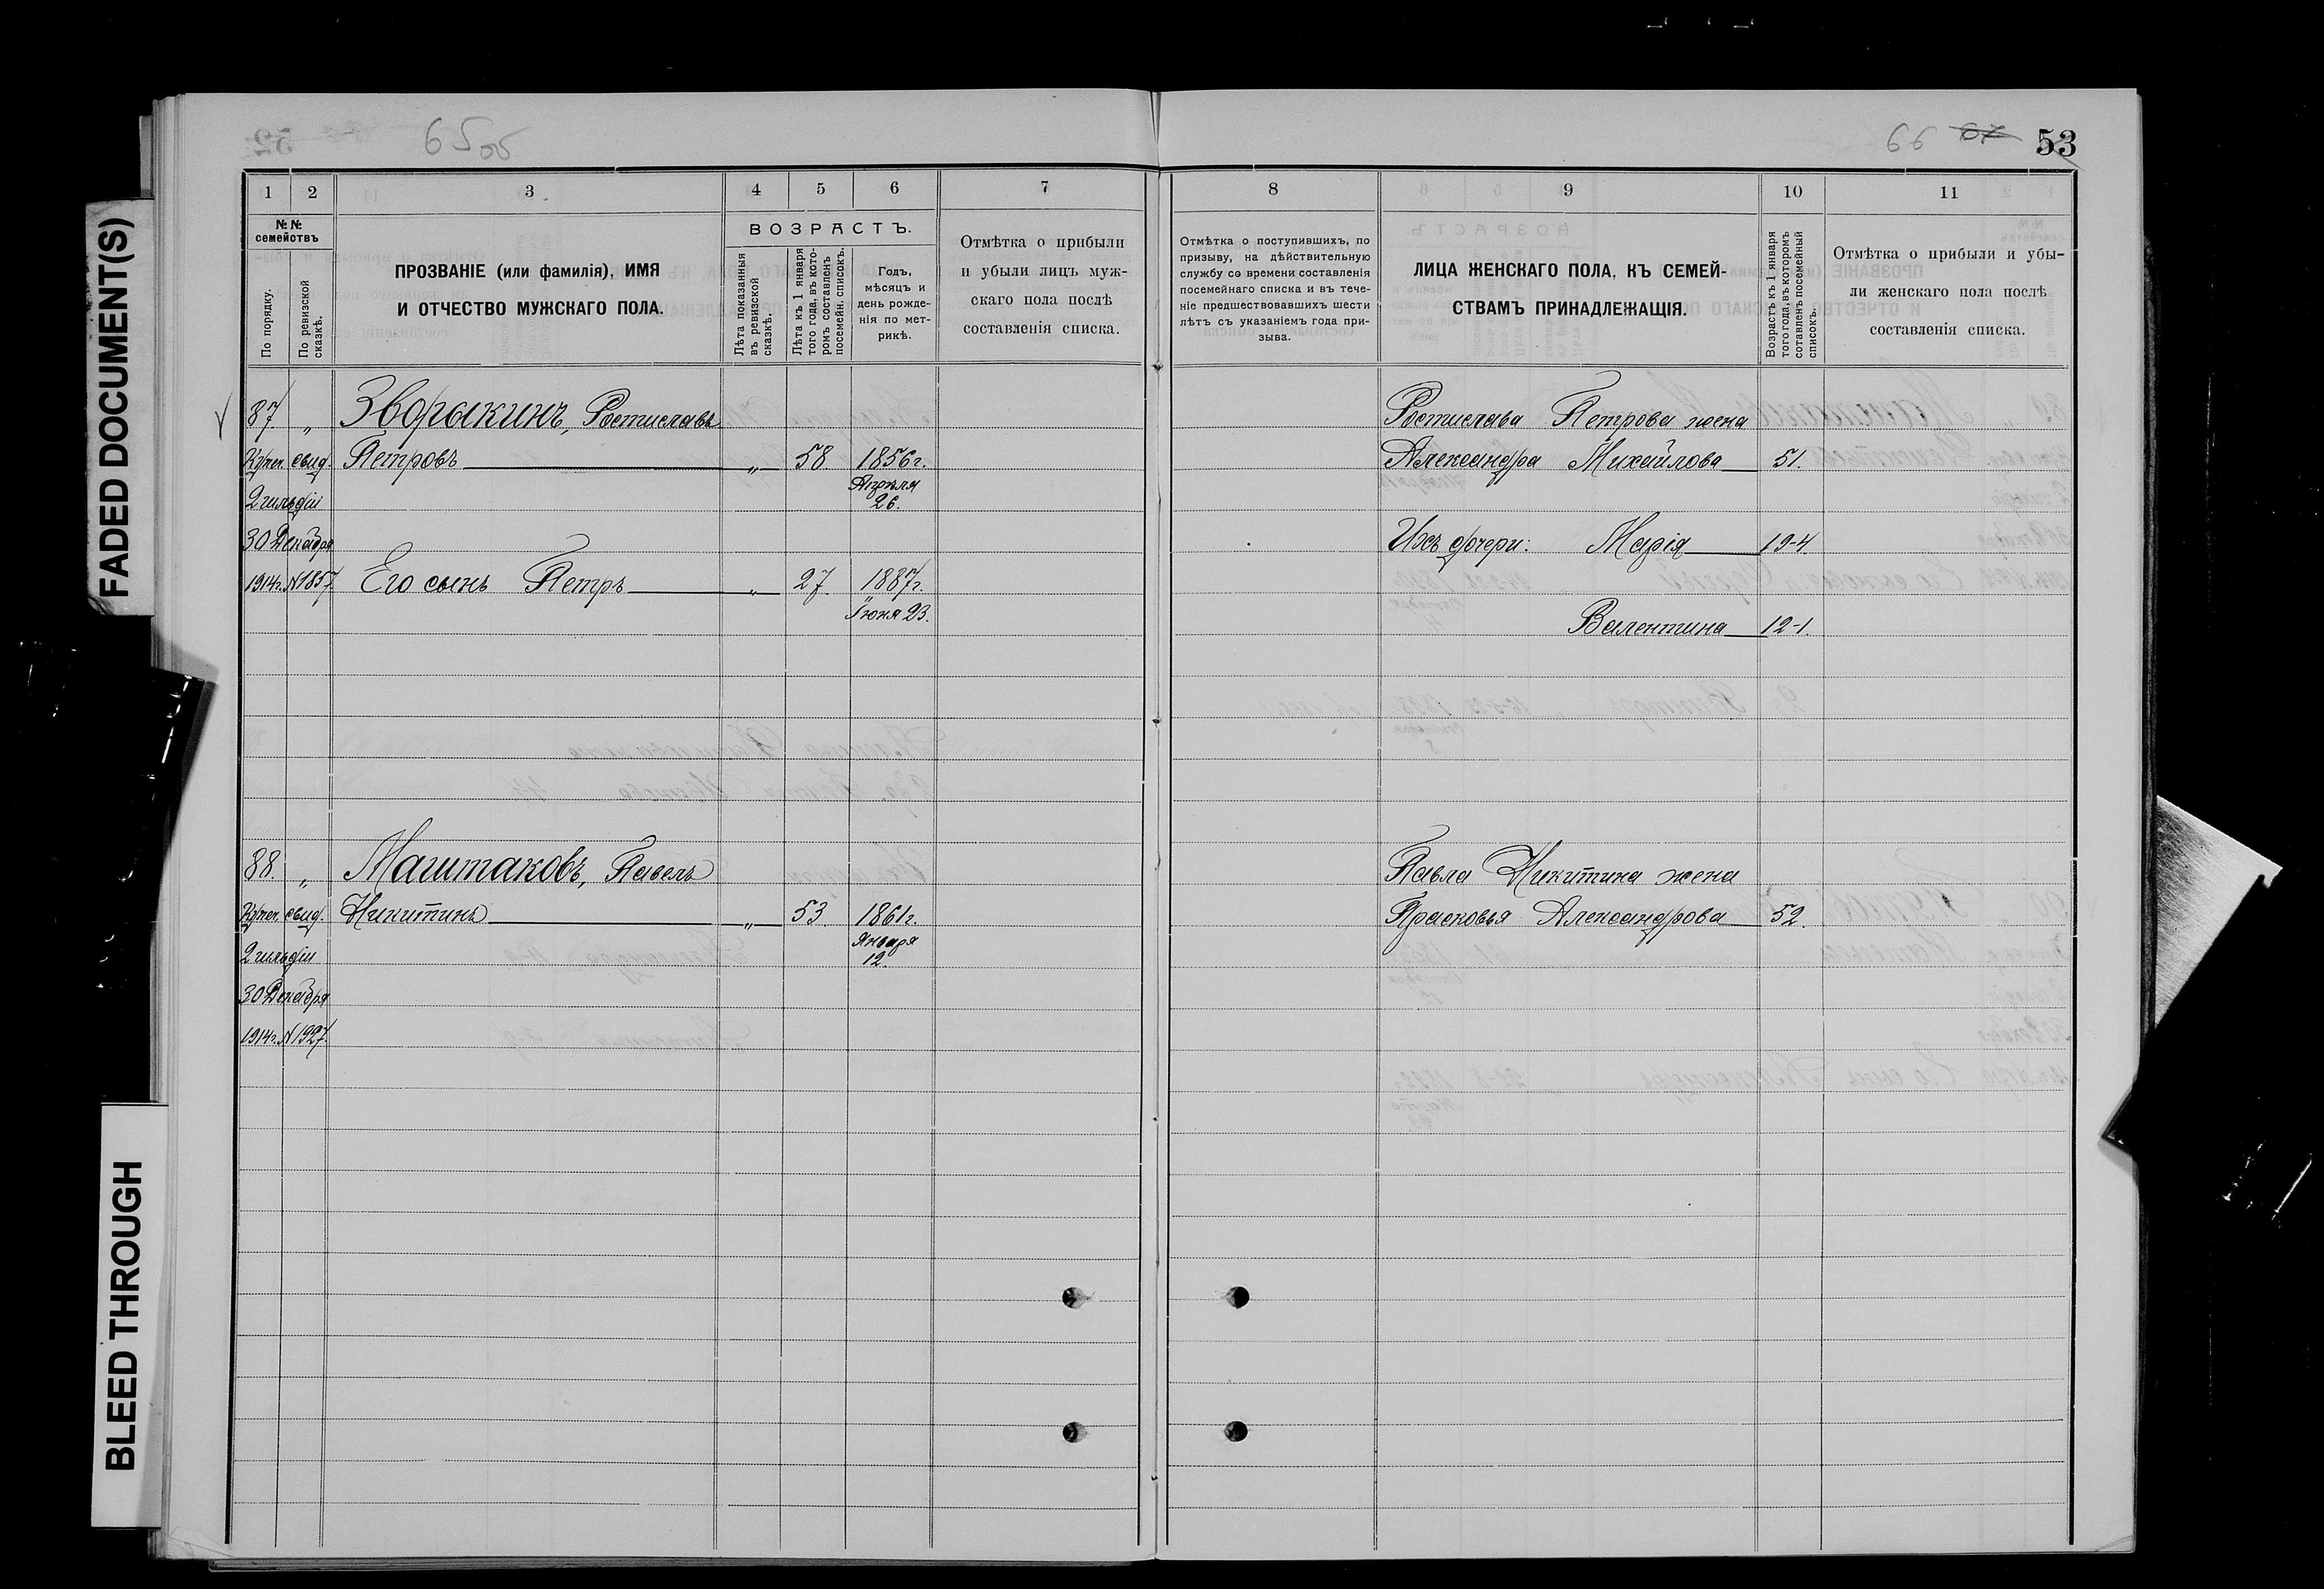 FADED DOCUMENT(S)
BLEED THROUGH
65 об
66 67 53
1 2 3 4 5 6 7
8 9 10 11
№№ семействъ
По порядку.
По ревизской сказкѣ.
ПРОЗВАНІЕ (или фамилія), ИМЯ
И ОТЧЕСТВО МУЖСКАГО ПОЛА.
ВОЗРАСТЪ.
Лѣта показанныя въ ревизской сказкѣ.
Лѣта къ 1 января того года, въ которомъ составленъ посемейн. списокъ.
Годъ,
мѣсяцъ и
день рожде-
нія по мет-
рикѣ.
Отмѣтка о прибыли
и убыли лицъ муж-
скаго пола послѣ
составленія списка.
Отмѣтка о поступившихъ, по
призыву, на дѣйствительную
службу со времени составленія
посемейнаго списка и въ тече-
ніе предшествовавшихъ шести
лѣтъ съ указаніемъ года при-
зыва.
ЛИЦА ЖЕНСКАГО ПОЛА, КЪ СЕМЕЙ-
СТВАМЪ ПРИНАДЛЕЖАЩІЯ.
Возрастъ къ 1 января
того года, въ которомъ
сотавленъ посемейный
списокъ.
Отмѣтка о прибыли и убы-
ли женскаго пола послѣ
составленія списка.
87. „ Зворыкинъ, Ростиславъ
Купеч. свид. Петровъ „ 58. 1856 г.
2 гильдіи Апрѣля
26.
30 Декабря
1914 г. N 1857. Его сынъ Петръ „ 27. 1887 г.
Іюня 23.
Ростислава Петрова жена
Александра Михайлова 51.
Ихъ дочери: Марія 19-4.
Валентина 12-1.
88. „ Маштаковъ, Павелъ
Купеч. свид. Никитинъ „ 53. 1861 г.
2 гильдіи Января
12.
30 Декабря
1914 г. N 1927.
Павла Никитина жена
Прасковья Александрова 52.